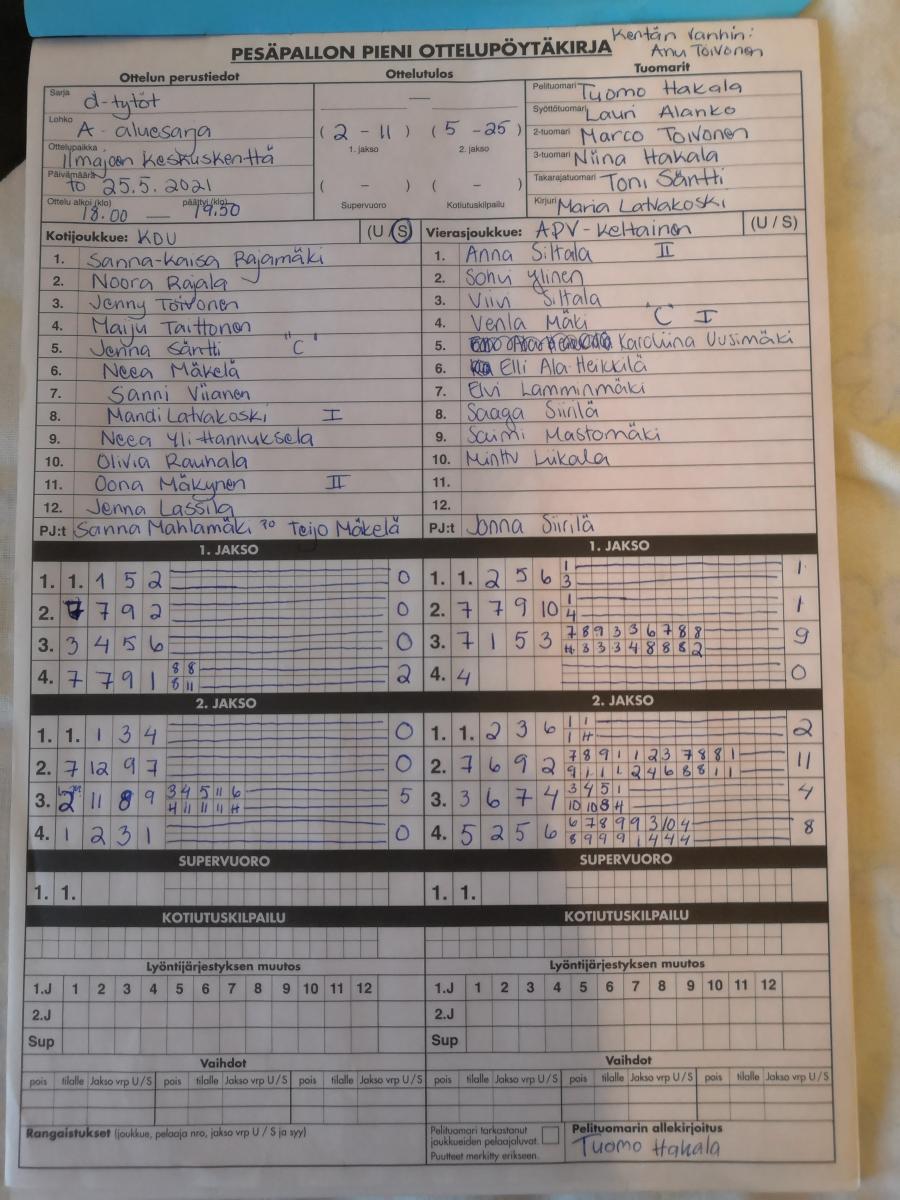 Kentän vanhin:
PESÄPALLON PIENI OTTELUPÖYTÄKIRJA Anu Toivonen
Ottelun perustiedot Ottelutulos Tuomarit
Sarja d-tytöt — Pelituomari Tuomo Hakala
Lohko A-aluesarja ( 2 - 11 ) ( 5 - 25 ) Syöttötuomari Lauri Alanko
1. jakso 2. jakso 2-tuomari Marco Toivonen
Ottelupaikka Ilmajoen Keskuskenttä 3-tuomari Niina Hakala
Päivämäärä to 25.5. 2021 ( - ) ( - ) Takarajatuomari Toni Säntti
Ottelu alkoi (klo) 18.00 — päättyi (klo) 19.50 Supervuoro Kotiutuskilpailu Kirjuri Maria Latvakoski
Kotijoukkue: KDU (U / S) Vierasjoukkue: APV-Keltainen (U / S)
1. Sanna-Kaisa Rajamäki 1. Anna Siltala II
2. Noora Rajala 2. Sohvi Ylinen
3. Jenny Toivonen 3. Viivi Siltala
4. Maiju Taittonen 4. Venla Mäki "C" I
5. Jenna Säntti "C" 5. Karoliina Uusimäki
6. Neea Mäkelä 6. Elli Ala-Heikkilä
7. Sanni Viianen 7. Elvi Lamminmäki
8. Mandi Latvakoski I 8. Saaga Siirilä
9. Neea Yli-Hannuksela 9. Saimi Mastomäki
10. Olivia Rauhala 10. Minttu Liikala
11. Oona Mäkynen II 11.
12. Jenna Lassila 12.
PJ:t Sanna Mahlamäki Teijo Mäkelä PJ:t Jonna Siirilä
1. JAKSO 1. JAKSO
1. 1. 1 5 2 0 1. 1. 2 5 6 1 3 1
2. 7 7 9 2 0 2. 7 7 9 10 1 4 1
3. 3 4 5 6 0 3. 7 1 5 3 7 8 9 3 3 6 7 8 8 9
H 3 3 3 4 8 8 8 2
4. 7 7 9 1 8 8 2 4. 4 0
8 11
2. JAKSO 2. JAKSO
1. 1. 1 3 4 0 1. 1. 2 3 6 1 1 2
1 H
2. 7 12 9 7 0 2. 7 6 9 2 7 8 9 1 1 2 3 7 8 8 1 11
9 1 1 1 2 4 6 8 8 1 1
3. 2 11 8 9 3 4 5 11 6 5 3. 3 6 7 4 3 4 5 1 4
4 11 11 11 H 10 10 8 H
4. 1 2 3 1 0 4. 5 2 5 6 6 7 8 9 9 3 10 4 8
8 9 9 9 1 4 4 4
SUPERVUORO SUPERVUORO
1. 1. 1. 1.
KOTIUTUSKILPAILU KOTIUTUSKILPAILU
Lyöntijärjestyksen muutos Lyöntijärjestyksen muutos
1.J 1 2 3 4 5 6 7 8 9 10 11 12 1.J 1 2 3 4 5 6 7 8 9 10 11 12
2.J 2.J
Sup Sup
Vaihdot Vaihdot
pois tilalle Jakso vrp U / S pois tilalle Jakso vrp U / S pois tilalle Jakso vrp U / S pois tilalle Jakso vrp U / S pois tilalle Jakso vrp U / S pois tilalle Jakso vrp U / S
Rangaistukset (joukkue, pelaaja nro, jakso vrp U / S ja syy) Pelituomari tarkastanut Pelituomarin allekirjoitus
joukkueiden pelaajaluvat. Tuomo Hakala
Puutteet merkitty erikseen.